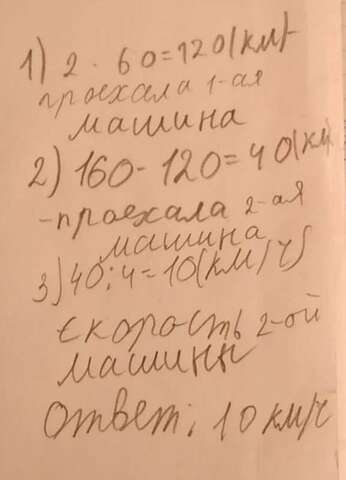 1) 2 · 60=120(км)-
проехала 1-ая
машина
2) 160- 120=40(км)
-проехала 2-ая
машина
3) 40:4=10(км/ч)
скорость 2-ой
машины
Ответ: 10 км/ч